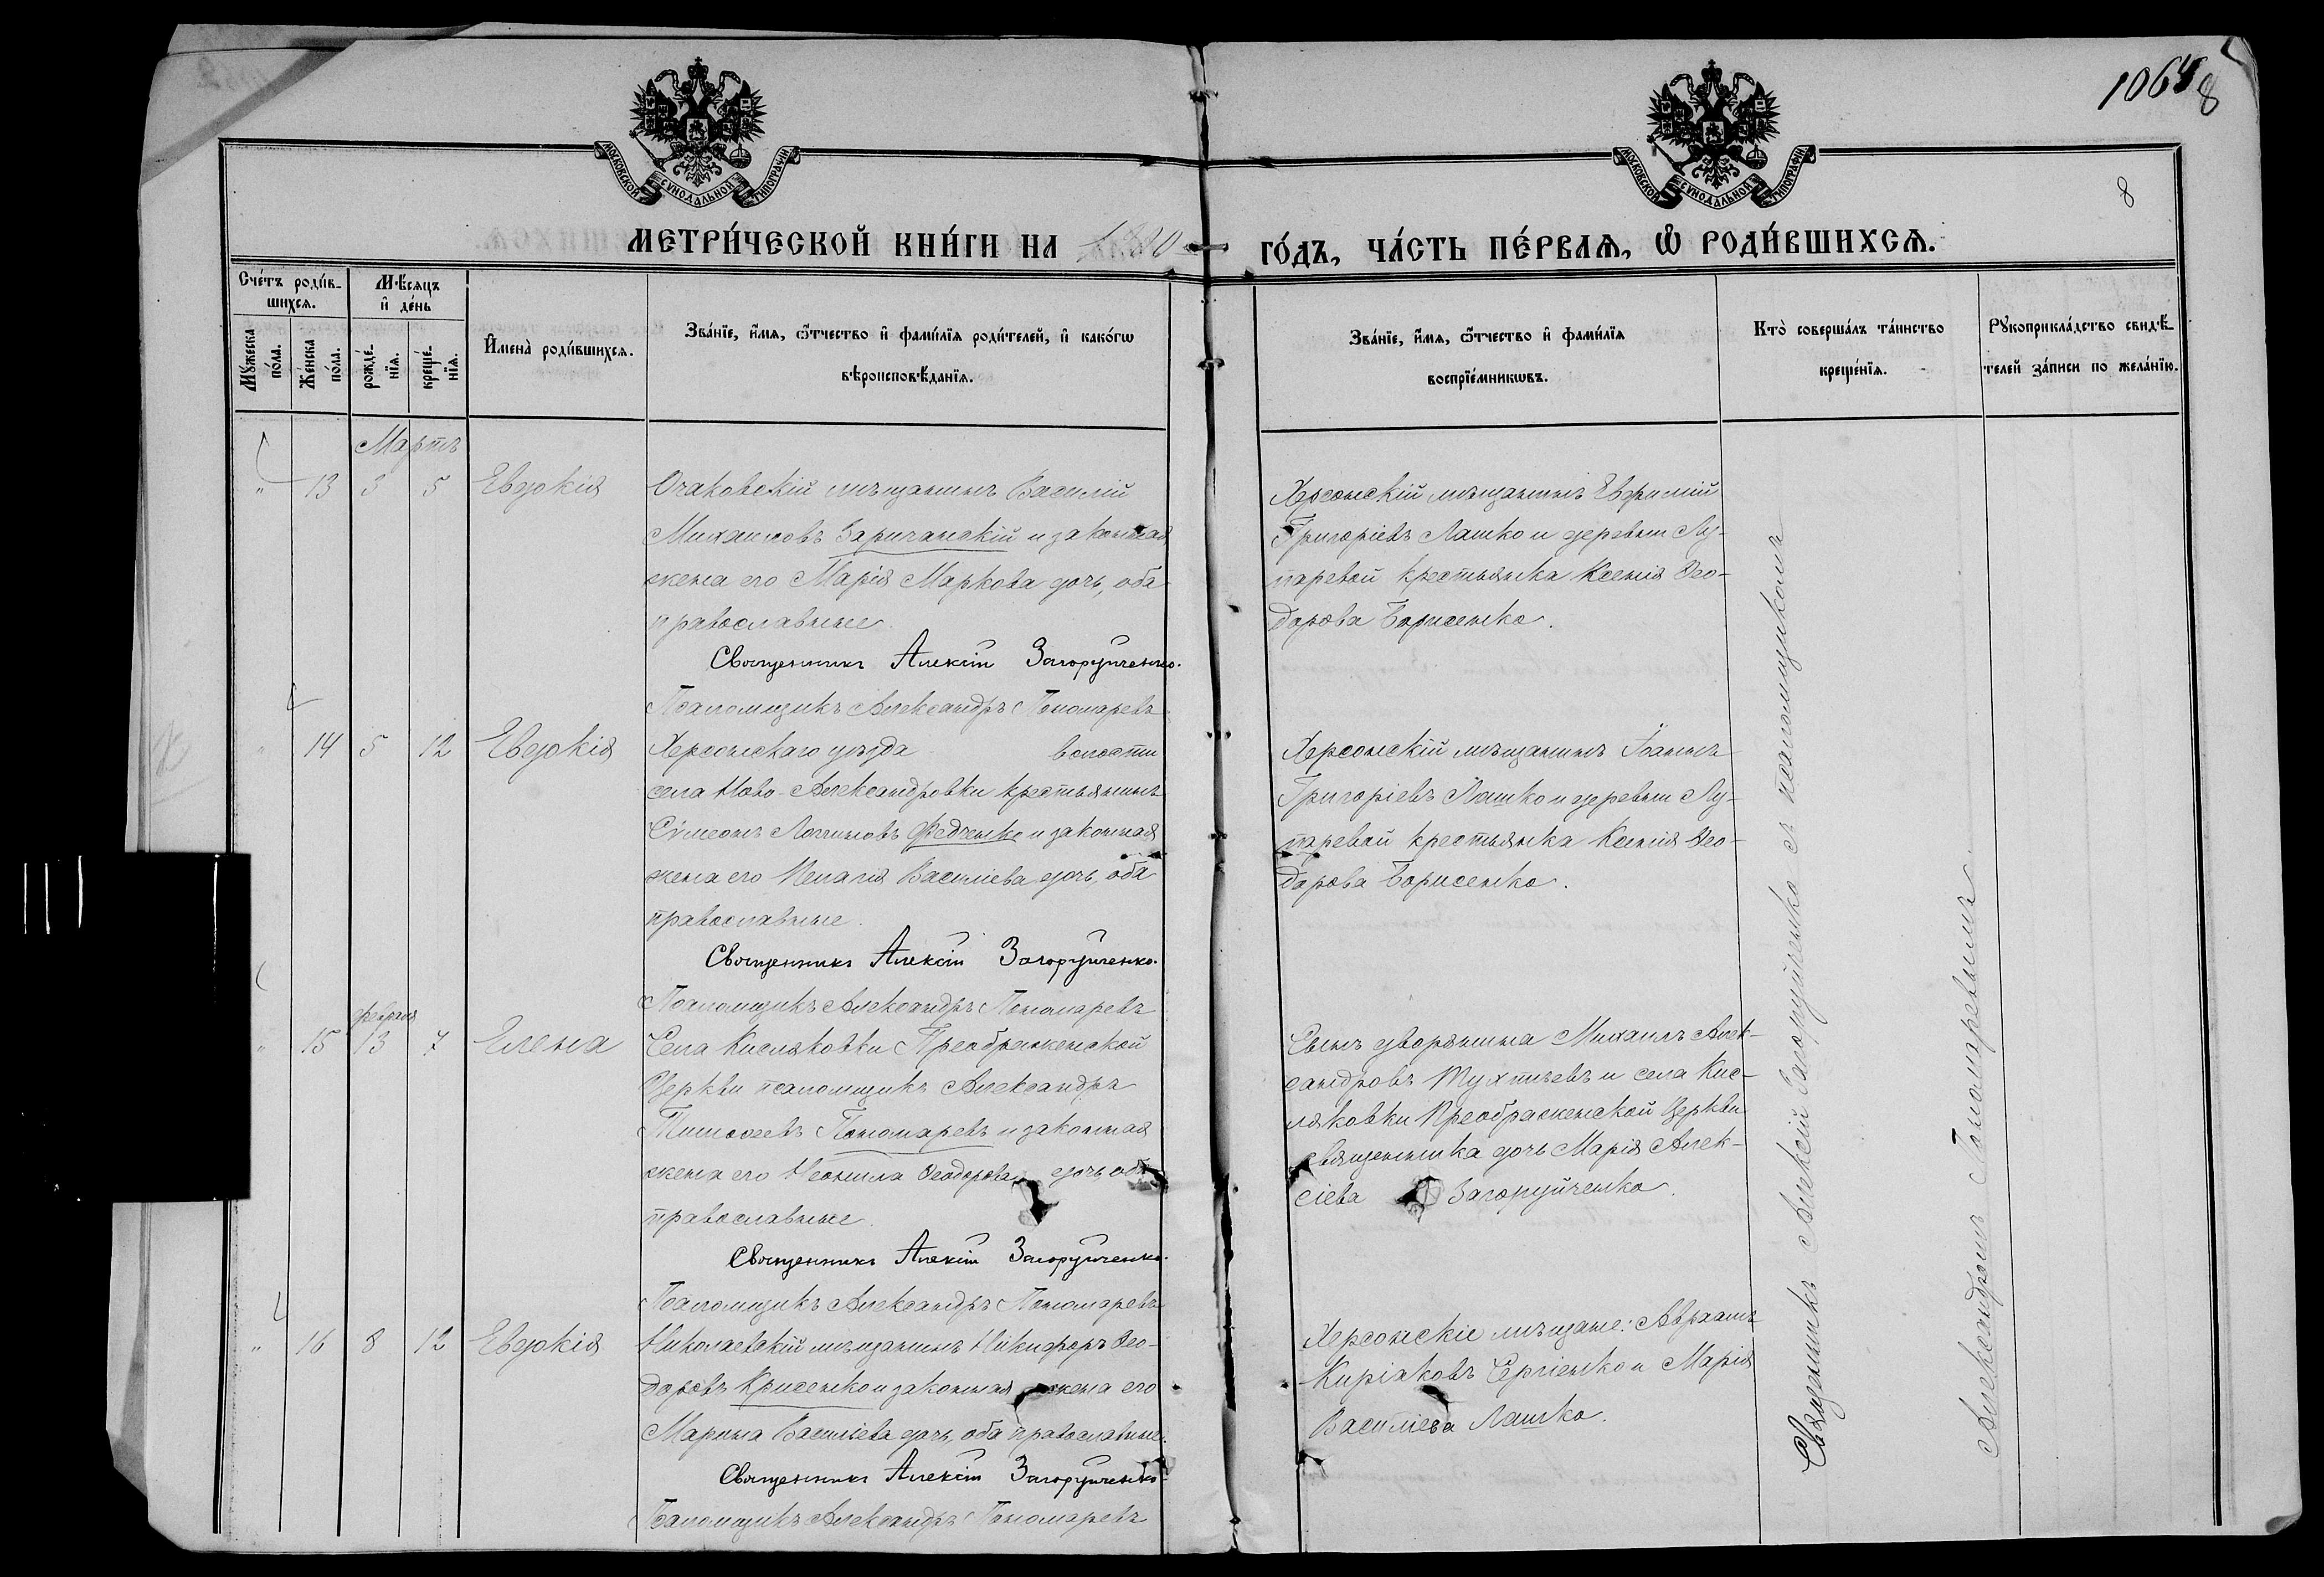 1064 8
8
МОСКОВСКОЙ СѴНОДАЛЬНОЙ ТИПОГРАФІИ
МОСКОВСКОЙ СѴНОДАЛЬНОЙ ТИПОГРАФІИ
МЕТРИ́ЧЕСКОЙ КНИ́ГИ НА 1880 ГО́ДЪ, ЧА́СТЬ ПЕ́РВАѦ, Ѽ РОДИ́ВШИХСѦ.
Сче́тъ роди́в-
шихсѧ.
Мѣ́сѧцъ
и҆ де́нь
Мꙋ́жеска
по́ла.
Же́нска
по́ла.
рожде́-
нїѧ.
креще́-
нїѧ.
И҆мена̀ роди́вшихсѧ.
Зва́нїе, и҆́мѧ, ѻ҆́тчество и҆ фами́лїѧ роди́телей, и҆ како́гѡ
вѣроисповѣ́данїѧ.
Зва́нїе, и҆́мѧ, ѻ҆́тчество и҆ фами́лїѧ
воспрїе́мникѡвъ.
Кто̀ соверша́лъ та́инство
креще́нїѧ.
Рꙋкоприкла́дство свидѣ́-
телей за́писи по жела́нїю.
Мартъ
" 13 3 5 Евдокія
Очаковскій мѣщанинъ Василій
Михаиловъ Заричанскій и законная
жена его Марія Маркова дочь, оба
православные.
Священникъ Алексій Загоруйченко.
Псаломщикъ Александръ Пономаревъ
Херсонскій мѣщанинъ Евфимій
Григоріевъ Лашко и деревни Лу-
паревой крестьянка Ксенія Ѳео-
дорова Борисенко.
" 14 5 12 Евдокія
Херсонскаго уѣзда волости
села Ново-Александровки крестьянинъ
Сѵмеонъ Логгиновъ Федченко и законная
жена его Пелагія Василіева дочь, оба
православные.
Священникъ Алексій Загоруйченко.
Псаломщикъ Александръ Пономаревъ
Херсонскій мѣщанинъ Іоаннъ
Григоріевъ Лашко и деревни Лу-
паревой крестьянка Ксенія Ѳео-
дорова Борисенко.
февраля
" 15 13 7 Елена
Села Кисляковки Преображенской
Церкви псаломщикъ Александръ
Тимоѳеевъ Пономаревъ и законная
жена его Неонила Ѳеодорова дочь, оба
православные.
Священникъ Алексій Загоруйченко.
Псаломщикъ Александръ Пономаревъ
Сынъ дворянина Михаилъ Алек-
сандровъ Тухтѣевъ и села Кис-
ляковки Преображенской Церкви
священника дочь Марія Алек-
сіева Загоруйченко.
" 16 8 12 Евдокія
Николаевскій мѣщанинъ Никифоръ Ѳео-
доровъ Крисенко и законная жена его
Марина Василіева дочь, оба православные.
Священникъ Алексій Загоруйченко.
Псаломщикъ Александръ Пономаревъ
Херсонскіе мѣщане: Авраамъ
Киріаковъ Сергіенко и Марія
Василіева Лашко.
Священникъ Алексій Загоруйченко съ псаломщикомъ
Александромъ Пономаревымъ.